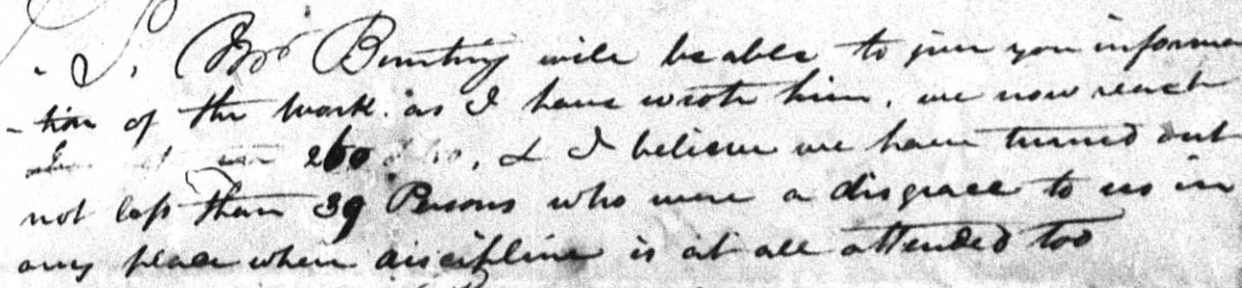 S, Bro Bunting will be able to give you informa
-tion of the work. as I have wrote him, we now reach
260, & I believe we have turned out
not less than 39 Persons who were a disgrace to us in
any place where discipline is at all attended too